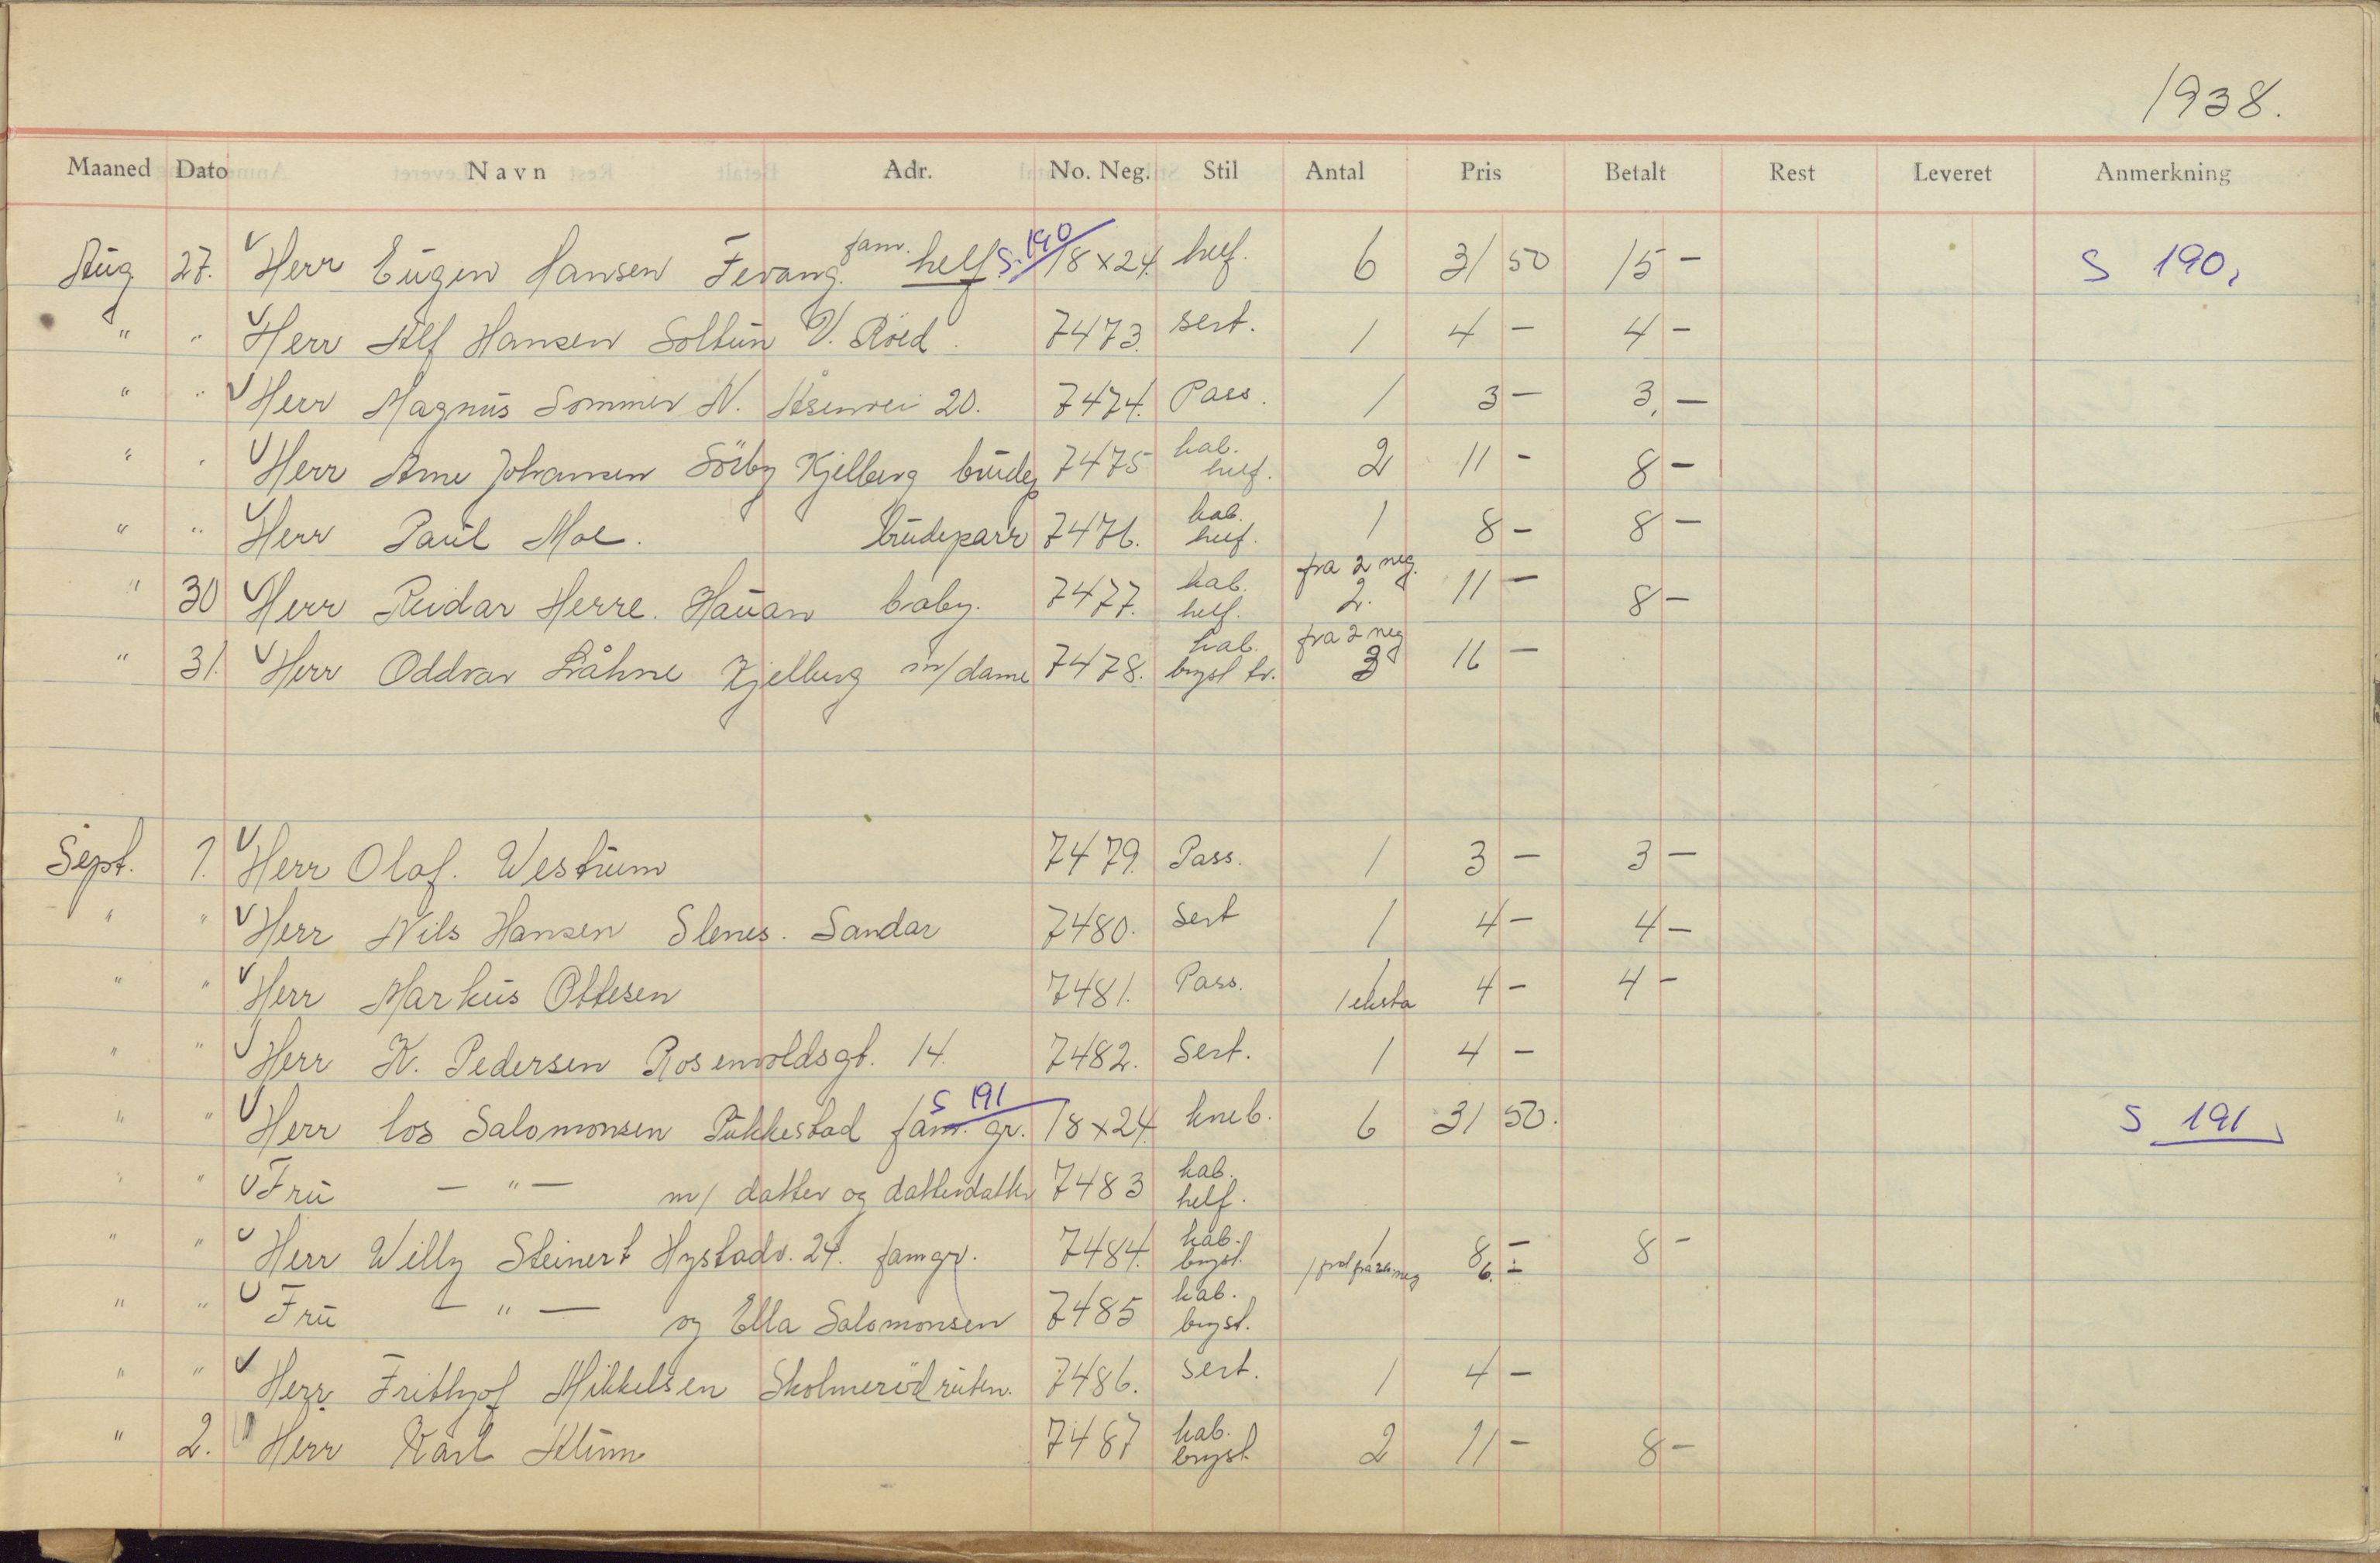 1938.
Maaned Dato Navn Adr. No. Neg. Stil Antal Pris Betalt Rest Leveret Anmerkning
Aug 27. Herr Eugen Hansen Fevang. fam. helf. S. 190 18x24. helf. 6 31 50 15 - S 190.
" " Herr Alf Hansen Soltun V. Röed. 7473. sert. 1 4 - 4 -
" " Herr Magnus Sommer N. Åsenvei 20. 7474. Pass. 1 3 - 3, -
" " Herr Arne Johansen Sörby Kjelberg brudep 7475 kab. helf. 2 11 - 8 -
" " Herr Paul Moe. brudeparr 7476. kab. helf. 1 8 - 8 -
" 30 Herr Reidar Herre. Hauan baby. 7477. kab. helf. fra 2 neg. 2. 11 - 8 -
" 31. Herr Oddvar Låhne Kjelberg m/dame 7478. kab. bryst tr. fra 2 neg 3 16 -
Sept. 1. Herr Olaf. Westrum 7479. Pass. 1 3 - 3 -
" " Herr Nils Hansen Slenes. Sandar 7480. Sert 1 4 - 4 -
" " Herr Markus Ottesen 7481. Pass. 1 1 eksta 4 - 4 -
" " Herr K. Pedersen Rosenvoldsgt. 14. 7482. Sert. 1 4 -
" " Herr Los Salomonsen Pukkestad fam. gr. S 191 18x24. kneb. 6 31 50. S 191
" " Fru - " - m/ datter og datterdatter 7483 kab. helf.
" " Herr Willy Steinert Hystadv. 24. famgr. 7484. kab. bryst. 1 8 - 6. - 8 -
" " Fru - " - og Ella Salomonsen 7485 kab. bryst.
" " Herr Frithjof Mikkelsen Skolmerödruten. 7486. sert. 1 4 -
" 2. Herr Karl Klum 7487 kab. bryst 2 11 - 8 -